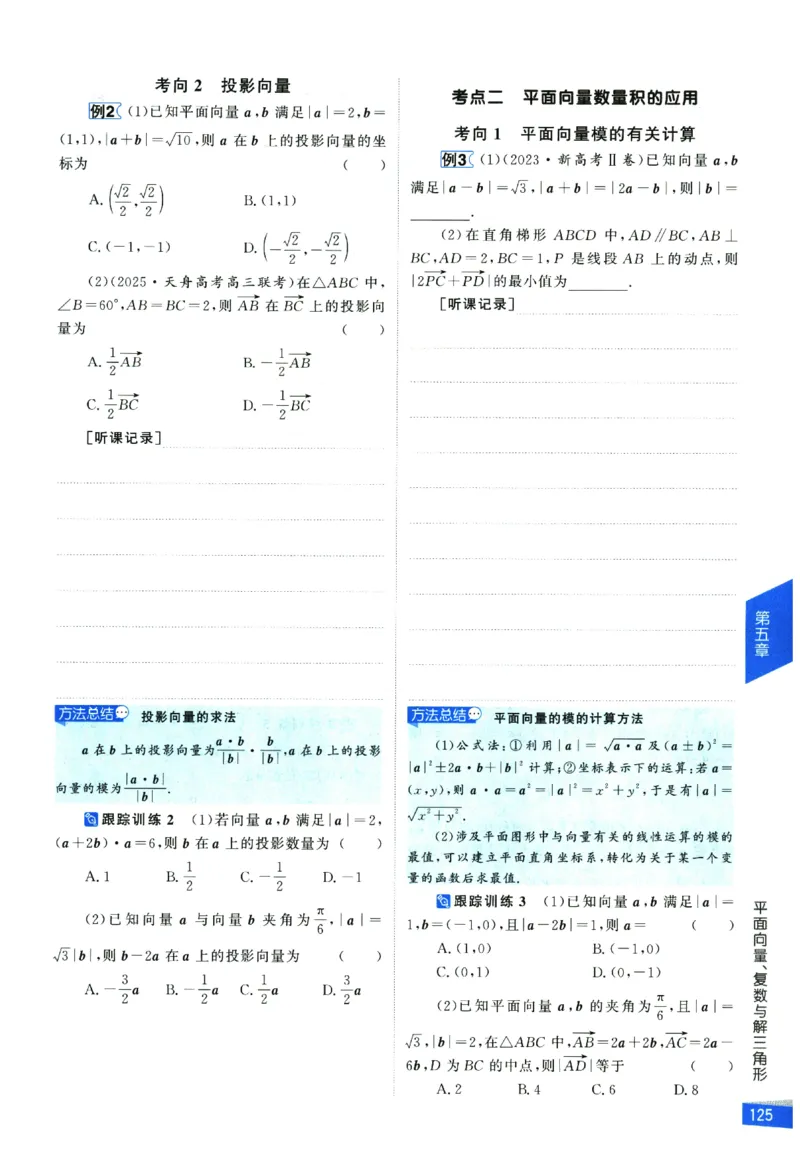 考向 2 投影向量
例2 (1)已知平面向量 a,b 满足|a|=2,b=
(1,1),|a+b|=√10,则 a 在 b 上的投影向量的坐
标为 ( )
A.(√2/2,√2/2) B.(1,1)
C.(-1,-1) D.(-√2/2,-√2/2)
(2)(2025·天舟高考高三联考)在△ABC 中,
∠B=60°,AB=BC=2,则 AB→ 在 BC→ 上的投影向
量为 ( )
A.1/2 AB→ B.-1/2 AB→
C.1/2 BC→ D.-1/2 BC→
[听课记录]
方法总结 投影向量的求法
a 在 b 上的投影向量为 a·b/|b| · b/|b|,a 在 b 上的投影
向量的模为 |a·b|/|b|.
跟踪训练 2 (1)若向量 a,b 满足|a|=2,
(a+2b)·a=6,则 b 在 a 上的投影数量为 ( )
A.1 B.1/2 C.-1/2 D.-1
(2)已知向量 a 与向量 b 夹角为 π/6,|a|=
√3|b|,则 b-2a 在 a 上的投影向量为 ( )
A.-3/2 a B.-1/2 a C.1/2 a D.3/2 a
考点二 平面向量数量积的应用
考向 1 平面向量模的有关计算
例3 (1)(2023·新高考Ⅱ卷)已知向量 a,b
满足|a-b|=√3,|a+b|=|2a-b|,则|b|=
________.
(2)在直角梯形 ABCD 中,AD∥BC,AB⊥
BC,AD=2,BC=1,P 是线段 AB 上的动点,则
|2PC→+PD→|的最小值为________.
[听课记录]
方法总结 平面向量的模的计算方法
(1)公式法:①利用|a|=√a·a及(a±b)²=
|a|²±2a·b+|b|²计算;②坐标表示下的运算;若 a=
(x,y),则 a·a=a²=|a|²=x²+y²,于是有|a|=
√x²+y².
(2)涉及平面图形中与向量有关的线性运算的模的
最值,可以建立平面直角坐标系,转化为关于某一个变
量的函数后求最值.
跟踪训练 3 (1)已知向量 a,b 满足|a|=
1,b=(-1,0),且|a-2b|=1,则 a= ( )
A.(1,0) B.(-1,0)
C.(0,1) D.(0,-1)
(2)已知平面向量 a,b 的夹角为 π/6,且|a|=
√3,|b|=2,在△ABC 中,AB→=2a+2b,AC→=2a-
6b,D 为 BC 的中点,则|AD→|等于 ( )
A.2 B.4 C.6 D.8
第五章
平面向量、复数与解三角形
125